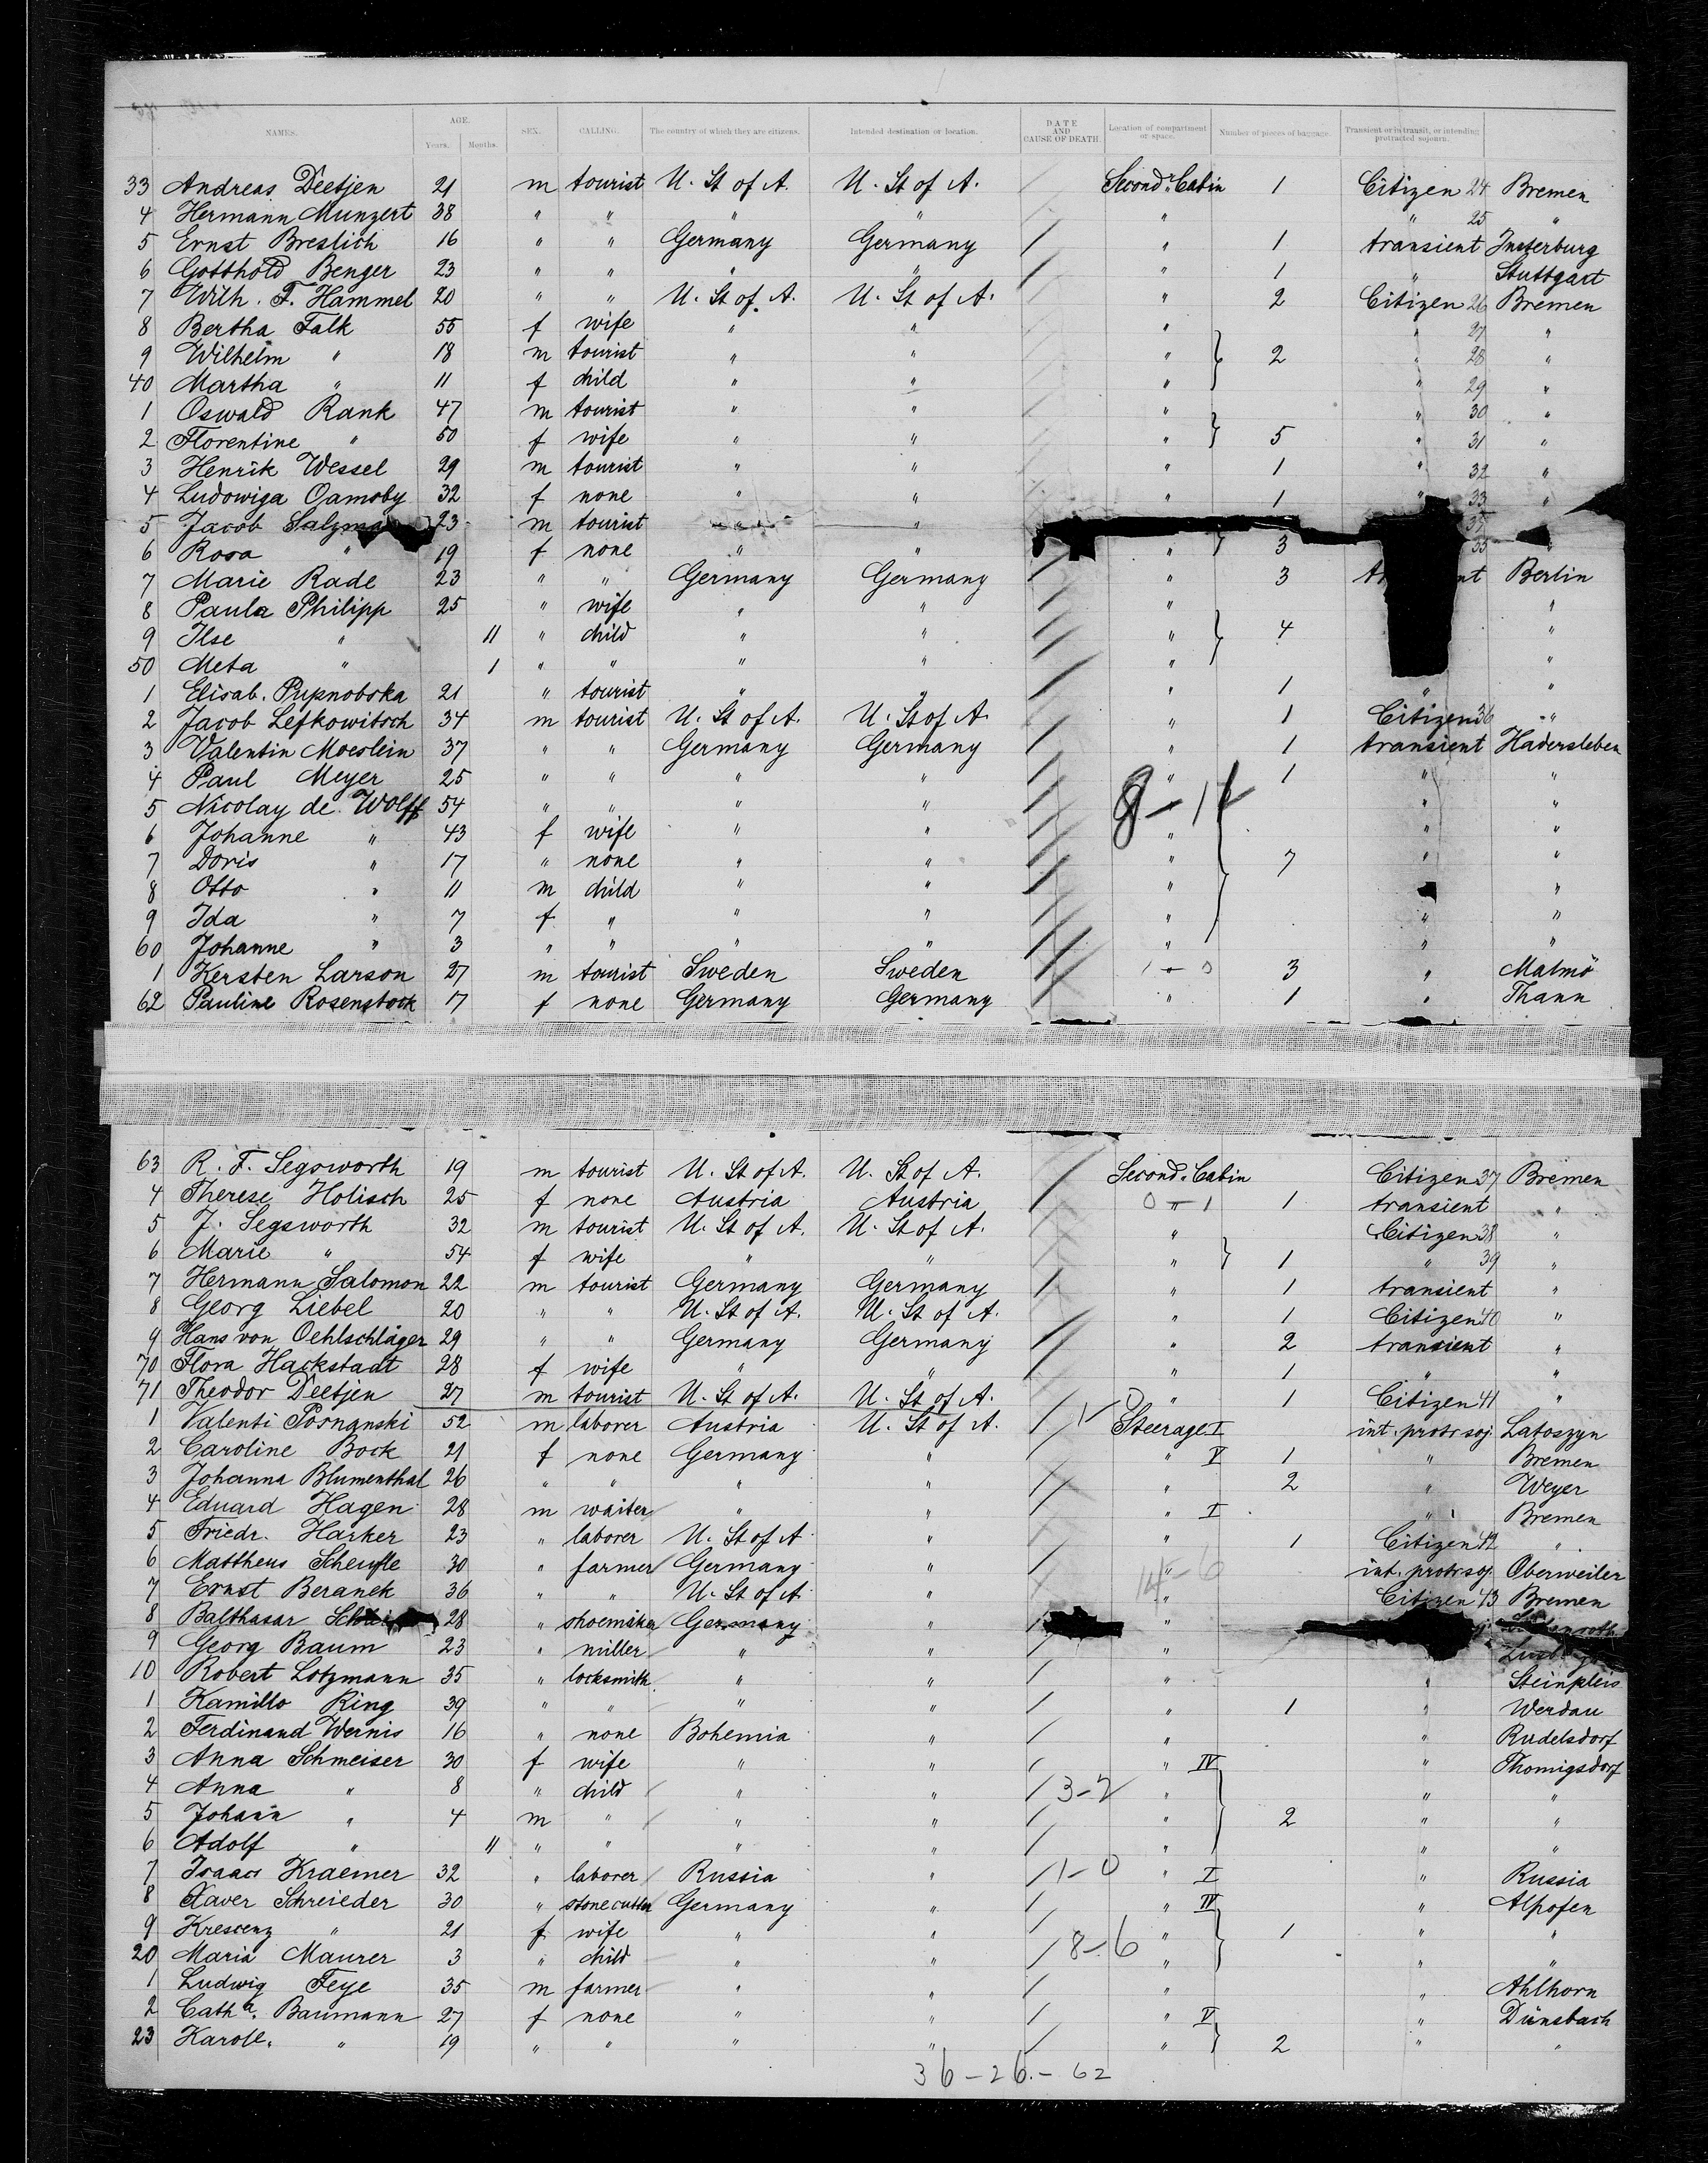 NAMES. AGE. Years. Months. SEX. CALLING. The country of which they are citizens. Intended destination or location. DATE AND CAUSE OF DEATH. Location of compartment or space. Number of pieces of baggage. Transient or in transit, or intending protracted sojourn.
33 Andreas Deetjen 21 m tourist U. St of A. U. St of A. / Second Cabin 1 Citizen 24 Bremen
4 Hermann Munzert 38 " " " " / " " 25 "
5 Ernst Breslich 16 " " Germany Germany / " 1 transient Insterburg
6 Gotthold Benger 23 " " " " / " 1 " Stuttgart
7 Wilh. F. Hammel 20 " " U. St of A. U. St of A. / " 2 Citizen 26 Bremen
8 Bertha Falk 55 f wife " " / " " 27 "
9 Wilhelm " 18 m tourist " " / " } 2 " 28 "
40 Martha " 11 f child " " / " " 29 "
1 Oswald Rank 47 m tourist " " / " " 30 "
2 Florentine " 50 f wife " " / " } 5 " 31 "
3 Henrik Wessel 29 m tourist " " / " 1 " 32 "
4 Ludowiga Oamoby 32 f none " " / " 1 " 33 "
5 Jacob 23 m tourist " "
6 Rosa " 19 f none " " / " } 3 35 "
7 Marie Rade 23 " " Germany Germany / " 3 Berlin
8 Paula Philipp 25 " wife " " / " "
9 Ilse " 11 " child " " / " } 4 "
50 Meta " 1 " " " " / " "
1 Elisab. Pupnobska 21 " tourist " " / " 1 " "
2 Jacob Lefkowitsch 34 m tourist U. St of A. U. St of A. " 1 Citizen 36 "
3 Valentin Moeslein 37 " " Germany Germany / " 1 transient Hadersleben
4 Paul Meyer 25 " " " " / " 1 " "
5 Nicolay de Wolff 54 " " " " / 8-14 " "
6 Johanne " 43 f wife " " / " " "
7 Doris " 17 " none " " / " } 7 " "
8 Otto " 11 m child " " / " "
9 Ida " 7 f " " " / " " "
60 Johanne " 3 " " " " / " " "
1 Kersten Larson 27 m tourist Sweden Sweden / 1-0 3 " Malmö
62 Pauline Rosenstock 17 f none Germany Germany / " 1 " Thann
63 R. F. Segsworth 19 m tourist U. St of A. U. St of A. / Second Cabin Citizen 37 Bremen
4 Therese Holisch 25 f none Austria Austria / 0-1 1 transient "
5 J. Segsworth 32 m tourist U. St of A. U. St of A. " Citizen 38 "
6 Marie " 54 f wife " " " } 1 " 39 "
7 Hermann Salomon 22 m tourist Germany Germany / " 1 transient "
8 Georg Liebel 20 " " U. St of A. U. St of A. " 1 Citizen 40 "
9 Hans von Oehlschläger 29 " " Germany Germany / " 2 transient "
70 Flora Hackstadt 28 f wife " " / " 1 " "
71 Theodor Deetjen 27 m tourist U. St of A. U. St of A. " 1 Citizen 41 "
1 Valenti Posnanski 52 m laborer Austria U. St of A. / 1-0 Steerage I int. protr soj. Latoszyn
2 Caroline Bock 21 f none Germany " / " V 1 " Bremen
3 Johanna Blumenthal 26 " " " " / " 2 " Weyer
4 Eduard Hagen 28 m waiter " " / " I " Bremen
5 Friedr. Harker 23 " laborer U. St of A " " 1 Citizen 42 "
6 Mattheus Scheufle 30 " farmer Germany " / 14-6 int. protr soj. Oberweiler
7 Ernst Beranek 36 " " U. St of A. " " Citizen 43 Bremen
8 Balthasar 28 " shoemaker Germany " / "
9 Georg Baum 23 " miller " " / "
10 Robert Lotzmann 35 " locksmith " " / " " Steinpleis
1 Kamillo Ring 39 " " " " / " 1 " Werdau
2 Ferdinand Wernis 16 " none Bohemia " / " " Rudelsdorf
3 Anna Schmeiser 30 f wife " " / " IV " Thomigsdorf
4 Anna " 8 " child " " / 3-2 " " "
5 Johann " 4 m " " " / " } 2 " "
6 Adolf " 11 " " " " / " " "
7 Isaac Kraemer 32 " laborer Russia " / 1-0 " I " Russia
8 Xaver Schreieder 30 " stonecutter Germany " / " IV " Alpofen
9 Krescenz " 21 f wife " " / " } 1 " "
20 Maria Maurer 3 " child " " / 8-6 " " "
1 Ludwig Feye 35 m farmer " " / " " Ahlhorn
2 Catha. Baumann 27 f none " " / " V " Dünsbach
23 Karole. " 19 " " " " / " } 2 " "
36-26-62